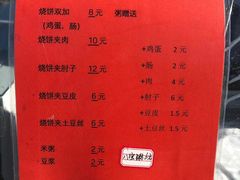 烧饼双加 8 元 粥赠送
(鸡蛋，肠)
烧饼夹肉 10 元
+鸡蛋 2 元
+肠 2 元
烧饼夹肘子 12 元
+肉 4 元
烧饼夹豆皮 6 元
+肘子 6 元
+豆皮 1.5 元
烧饼夹土豆丝 6 元
+土豆丝 1.5 元
米粥 2 元
豆浆 2 元